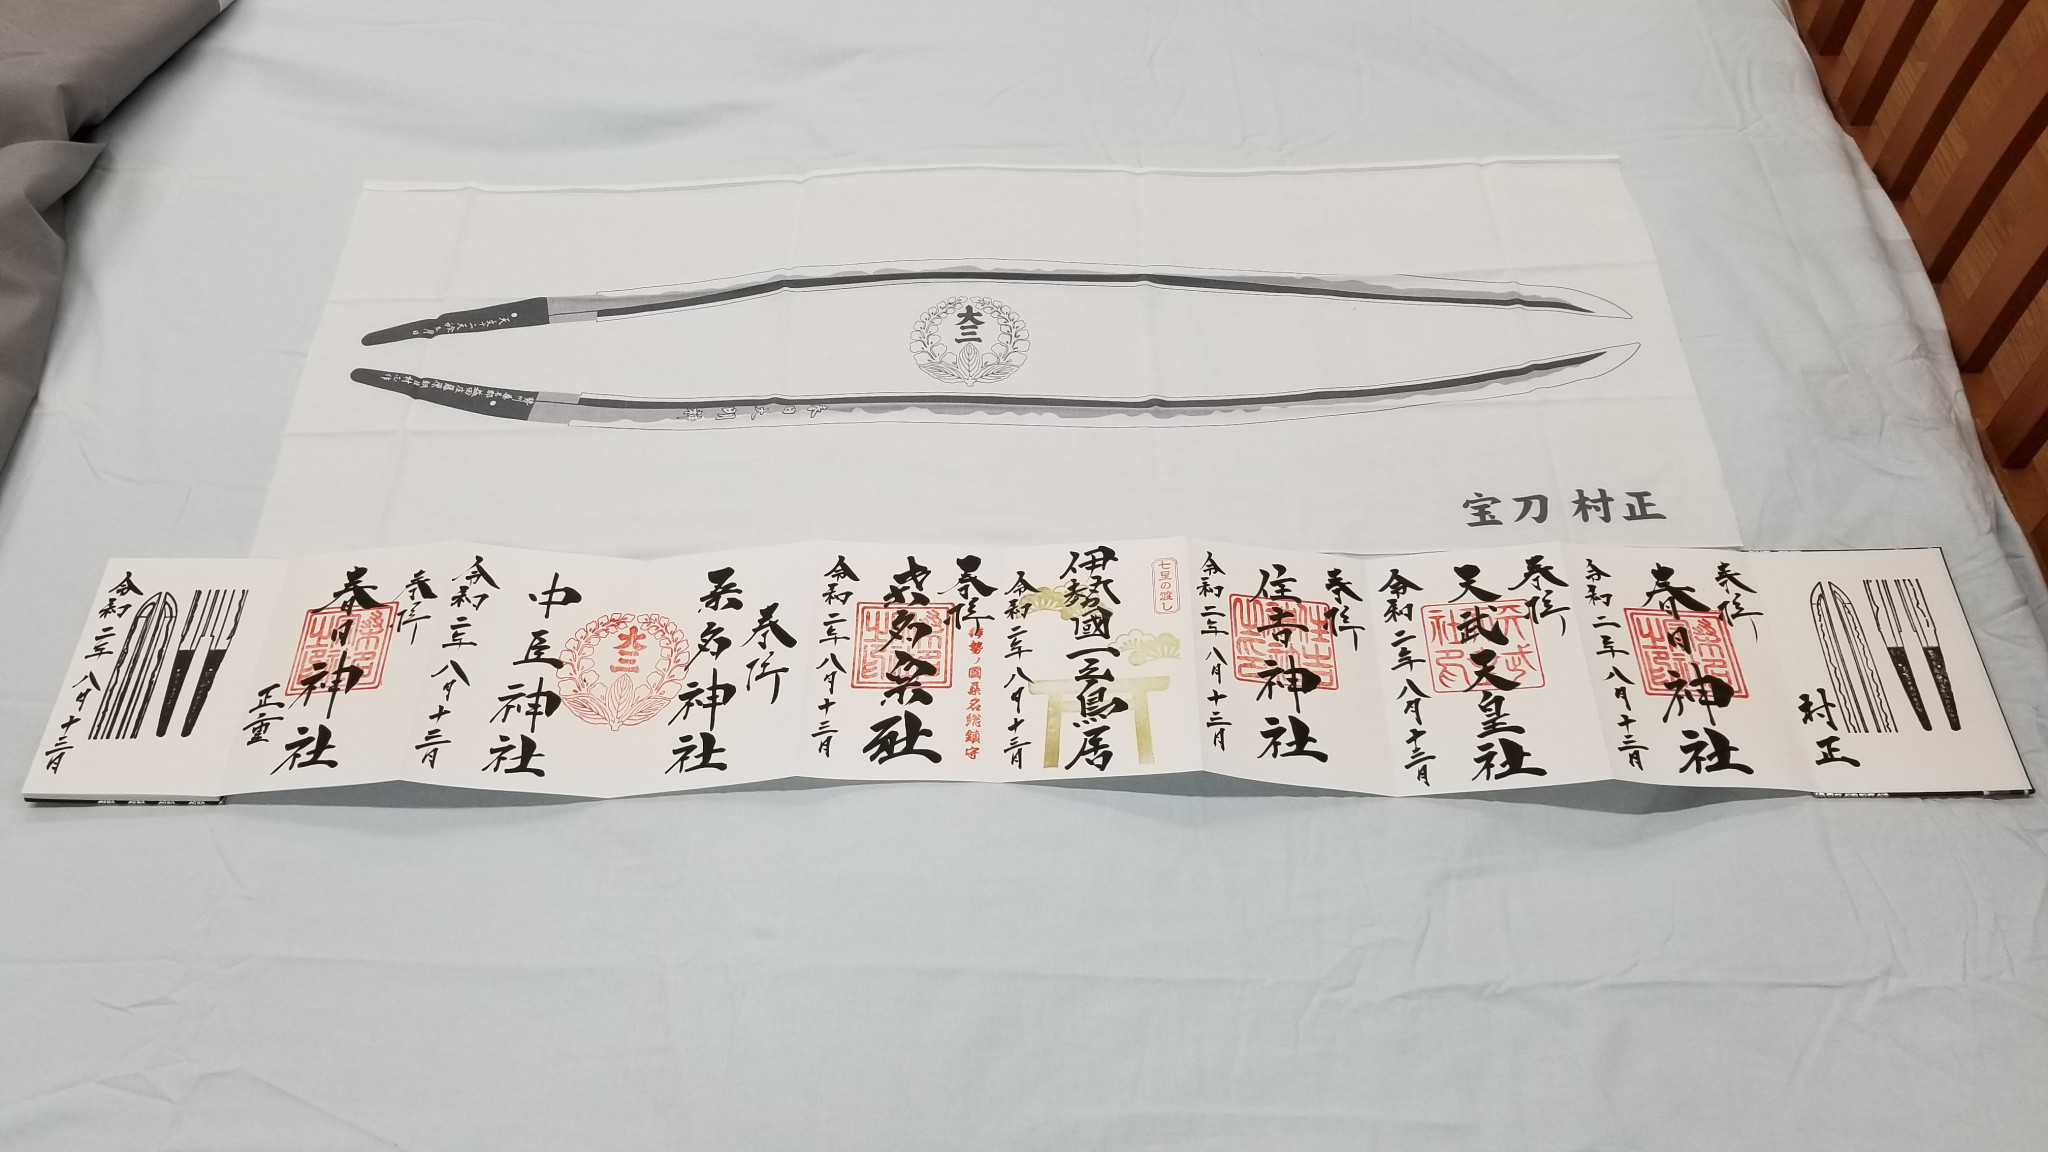 天文十二天癸卯五月日
大三
勢州桑名郡益田庄藤原朝臣村正作
春日大明神
宝刀 村正
奉拝
春日神社
令和二年八月十三日
村正
奉拝
天武天皇社
令和二年八月十三日
奉拝
住吉神社
令和二年八月十三日
七里の渡し
伊勢國一之鳥居
令和二年八月十三日
奉拝
桑名宗社
伊勢ノ國桑名総鎮守
令和二年八月十三日
奉拝
桑名神社
大三
中臣神社
令和二年八月十三日
奉拝
春日神社
正重
令和二年八月十三日